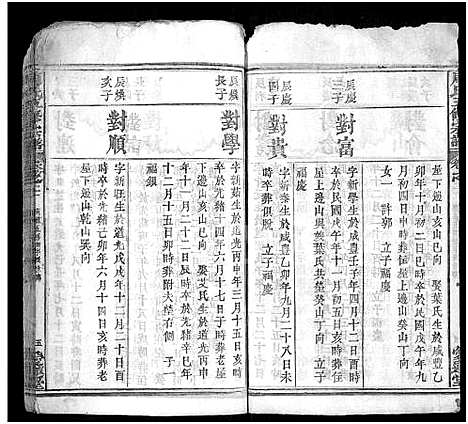 屋下邊山亥山巳向 娶葉氏生於咸豐乙
卯年十月初二日巳時卒於民國戊午年九
月初四日申時葬屋上邊山癸山丁向 子一
女一 計郭 立子福慶
辰慶
三子
對富
字新學生於咸豐壬子年四月十二日酉
時卒於民國戊午年十一月初五日亥時葬
屋上邊山與葬癸山丁向 立子
福慶
辰慶
四子
對貴
字新泰生於咸豐乙卯年九月二十八日未
時卒葬俱脫 立子福慶
辰燦
長子
對學
字新茹生於道光丙申年三月十五日亥時
卒於光緒十四年六月十七日子時葬老屋
下邊山亥山巳向 娶艾氏生於道光丙申
年十一月二十二日辰時卒於光緒辛巳年
十二月十五日卯時葬附夫墓右側 子一
福鎮
辰燦
次子
對順
字新旺生於道光戊戌年十二月二十日亥
時卒於光緒己卯年六月十四日亥時葬老
屋下邊山乾山巽向
五